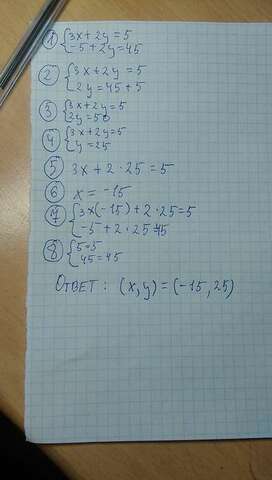 1 { 3x + 2y = 5
-5 + 2y = 45
2 { 3x + 2y = 5
2y = 45 + 5
3 { 3x + 2y = 5
2y = 50
4 { 3x + 2y = 5
y = 25
5 3x + 2 · 25 = 5
6 x = -15
7 { 3x(-15) + 2 · 25 = 5
-5 + 2 · 25 = 45
8 { 5 = 5
45 = 45
ОТВЕТ : (x, y) = (-15, 25)